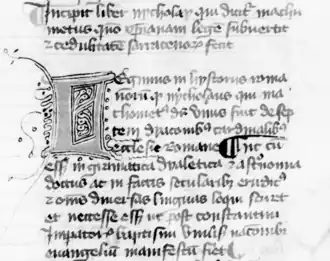 Incipit liber nycholay qui dicit machu
metus quo xp̄ianam lege subvertit
et credulitate sarracenoꝝ fecit
Legimus in hystoriis roma
noꝝ qꝫ nycholaus qui ma
chometꝰ dꝛ vnus fuit de sep
tem diaconibꝰ cardinalibꝰ
ecclesie romane ¶ hic cū
eēt in gramatica dyaletica et astronomia
doctus ac in factis secularibꝫ eruditꝰ
et omnes diversas linguas loqui sciret
et necesse eēt ut post constantini
impatoris baptismū
evangeliū manifestū fiet